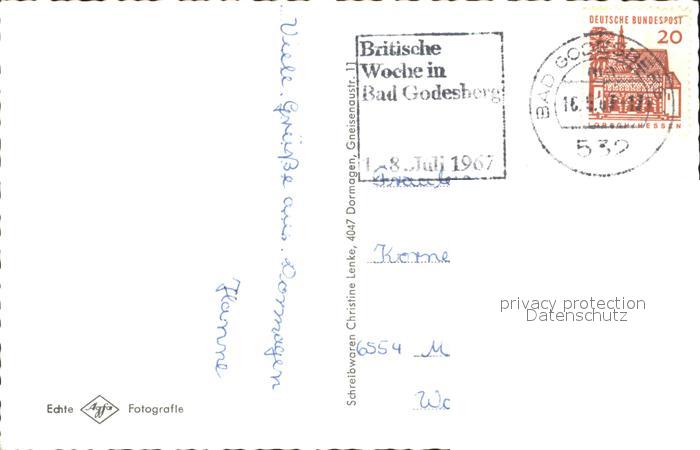 Viele Grüße aus Dormagen
Hanne
Echte Agfa Fotografie
Schreibwaren Christine Lenke, 4047 Dormagen, Gneisenaustr. 11
Britische
Woche in
Bad Godesberg
1.-8. Juli 1967
BAD GODESBERG
532
DEUTSCHE BUNDESPOST
20
LORSCH/HESSEN
Korne
6554 M
Wc
privacy protection
Datenschutz